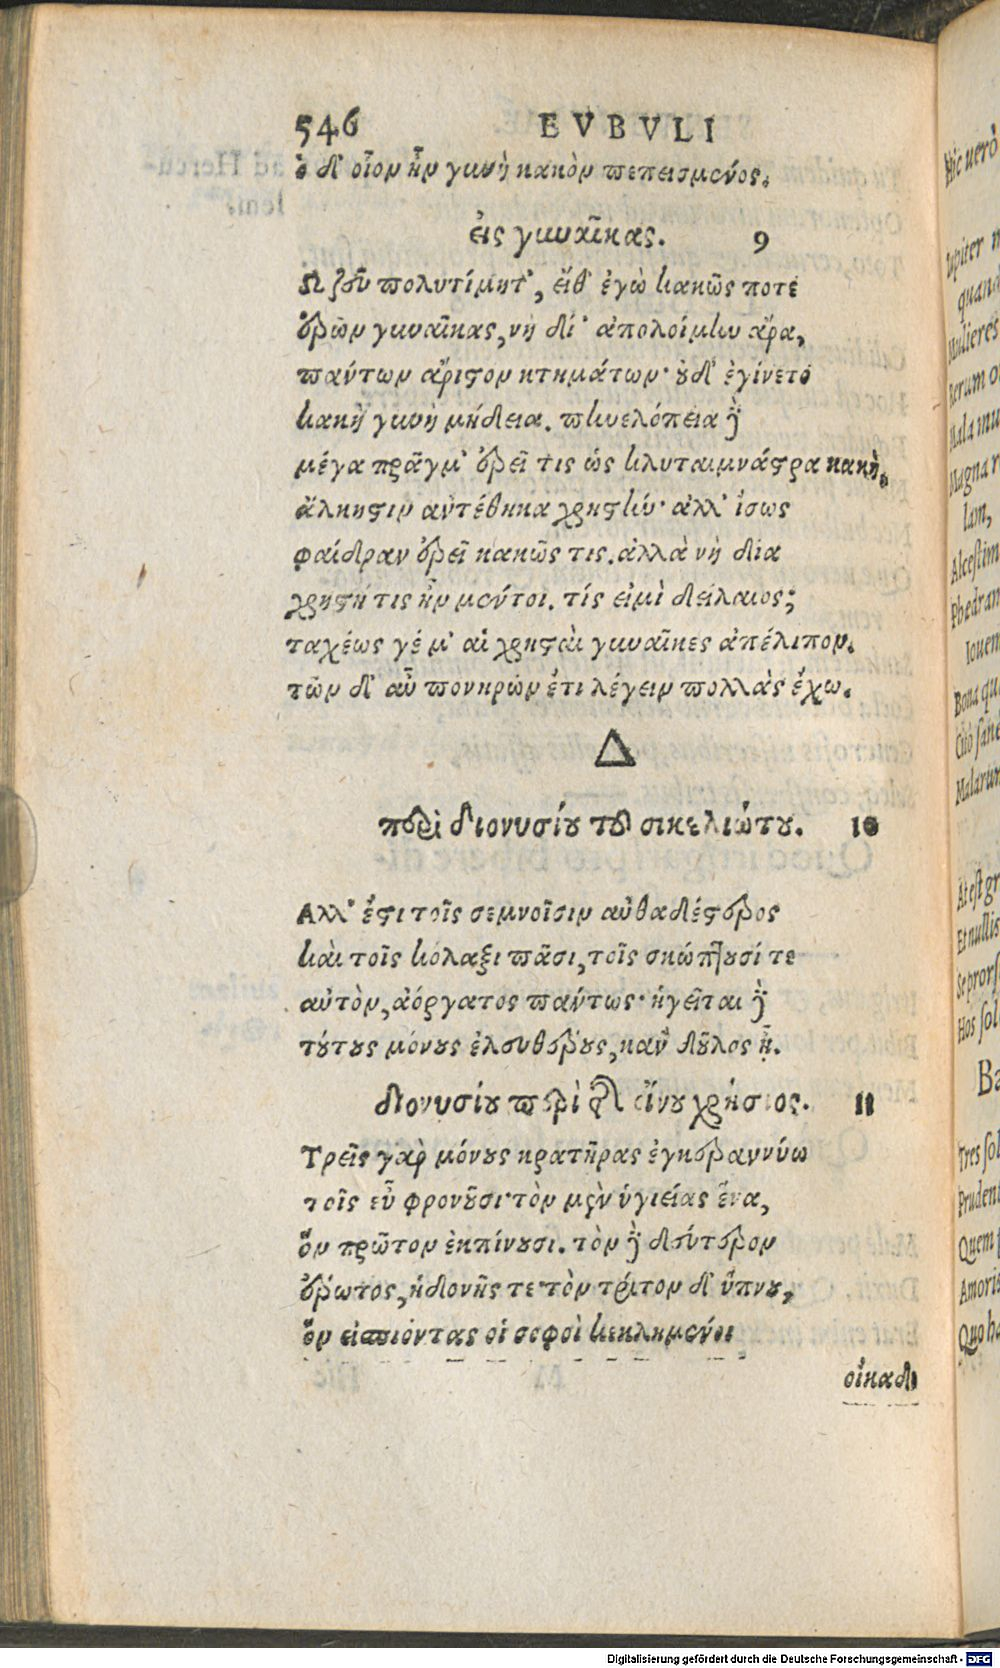 546 EVBVLI
ὁ δ' οἷον ἦν γυνὴ κακὸν πεπεισμένος.
εἰς γυναῖκας. 9
Ω ζεῦ πολυτίμητ', εἶθ' ἐγὼ κακῶς ποτέ
ἐρῶν γυναῖκας, νὴ δί' ἀπολοίμην ἄρα,
πάντων ἄριστον κτημάτων· οὐδ' ἐγίνετο
κακὴ γυνὴ μήδεια. πηνελόπεια δὲ
μέγα πρᾶγμ' ἐρεῖ τις ὡς κλυταιμνάστρα κακὴ.
ἄλκηστιν αὐτέθηκα χρηστήν· ἀλλ' ἴσως
φαίδραν ἐρεῖ κακῶς τις. ἀλλὰ νὴ δία
χρηστή τις ἦν μέντοι. τίς εἰμὶ δείλαιος;
ταχέως γέ μ' αἱ χρησταὶ γυναῖκες ἀπέλιπον.
τῶν δ' αὖ πονηρῶν ἔτι λέγειν πολλὰς ἔχω.
Δ
περὶ διονυσίου τοῦ σικελιώτου. 10
Αλλ' ἔστι τοῖς σεμνοῖσιν αὐθαδέστερος
καὶ τοῖς κόλαξι πᾶσι, τοῖς σκώπτουσί τε
αὐτὸν, ἀόργατος πάντως· ἡγεῖται δὲ
τούτους μόνους ἐλευθέρους, κἂν δοῦλος ᾖ.
διονυσίου περὶ τοῦ οἴνου χρήσιος. 11
Τρεῖς γὰρ μόνους κρατῆρας ἐγκεραννύω
τοῖς εὖ φρονοῦσι· τὸν μὲν ὑγιείας ἕνα,
ὃν πρῶτον ἐκπίνουσι. τὸν δὲ δεύτερον
ἔρωτος, ἡδονῆς τε· τὸν τρίτον δ' ὕπνου,
ὃν εἰσπιόντας οἱ σοφοὶ κεκλημένοι
οἴκαδε